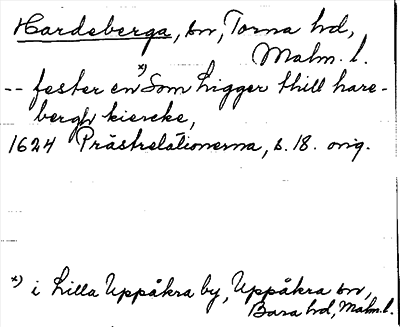 Hardeberga, sn, Torna hd,
Malm. l.
-- fester en *) Som Ligger thill hare-
bergh kiercke,
1624 Prästrelationerna, s. 18. orig.
*) i Lilla Uppåkra by, Uppåkra sn,
Bara hd, Malm. l.